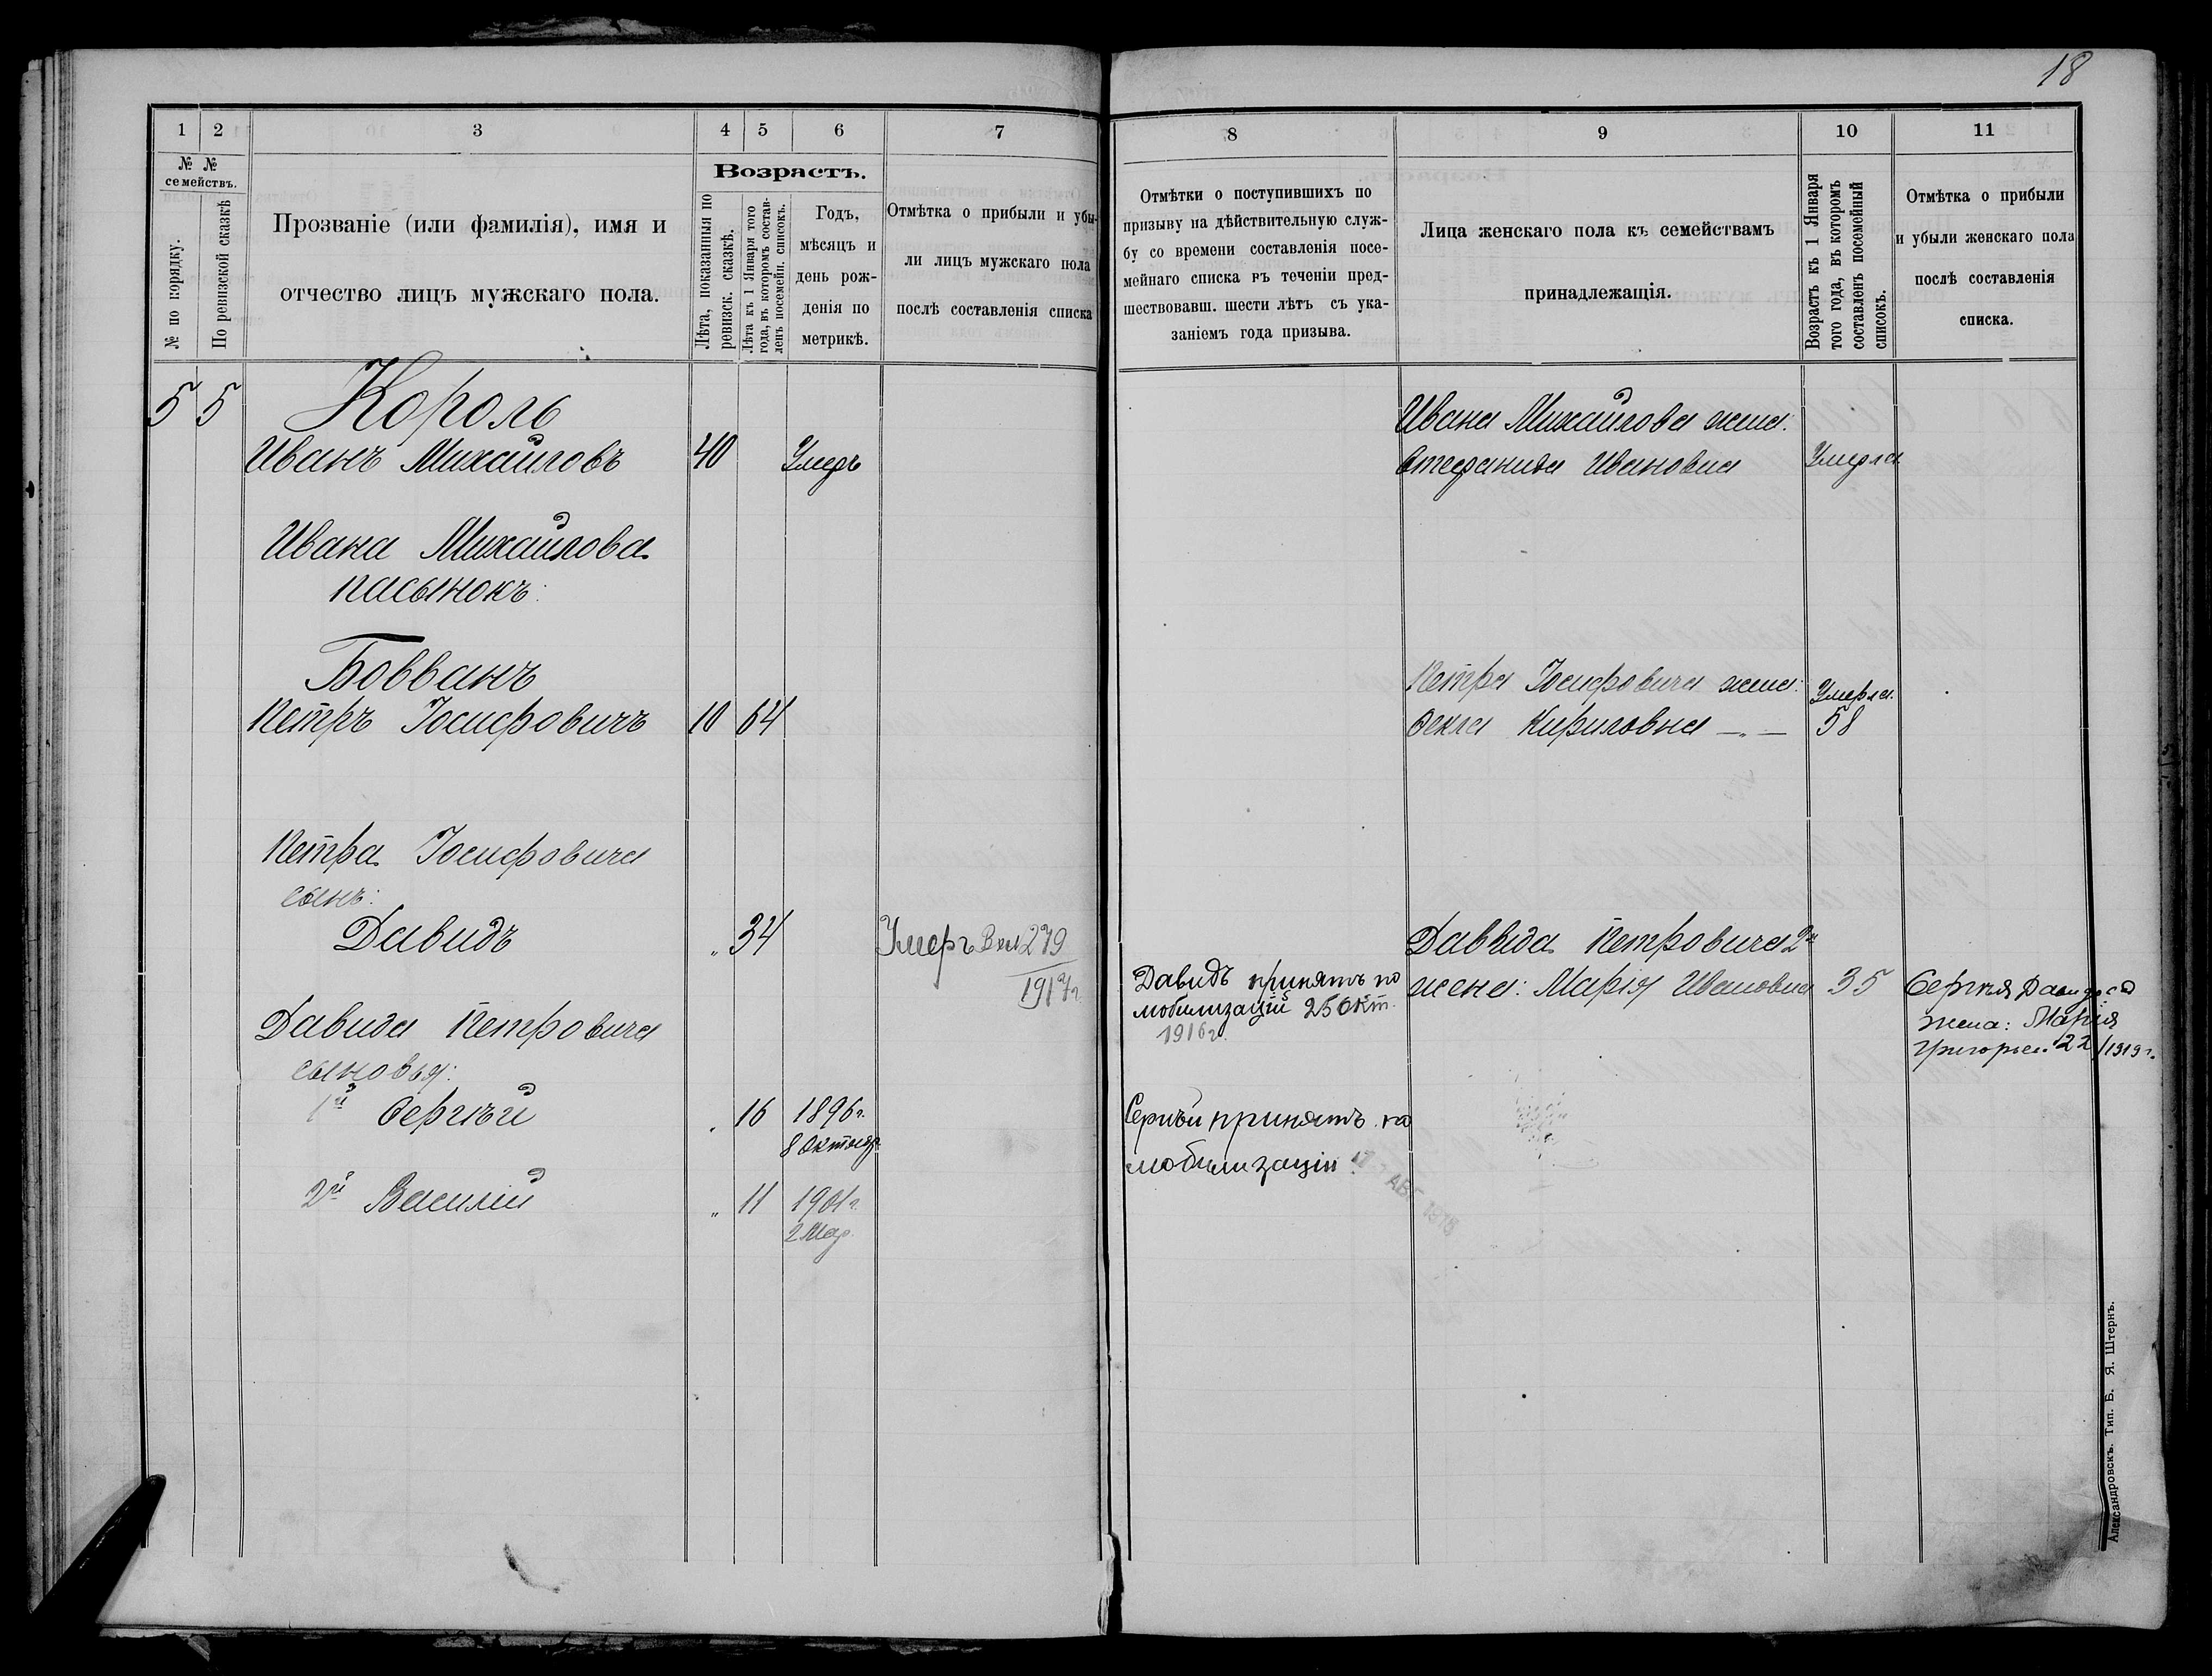 18
1
2
3
4
5
6
7
№ №
семействъ.
№ по порядку.
По ревизской сказкѣ
Прозваніе (или фамилія), имя и
отчество лицъ мужскаго пола.
Возрастъ.
Лѣта, показанныя по
ревизск. сказкѣ.
Лѣта къ 1 Января того
года, въ которомъ состав-
ленъ посемейн. списокъ.
Годъ,
мѣсяцъ и
день рож-
денія по
метрикѣ.
Отмѣтка о прибыли и убы-
ли лицъ мужскаго пола
послѣ составленія списка
5 5 Король
Иванъ Михайловъ 40 Умеръ
Ивана Михайлова
пасынокъ:
Бовванъ
Петръ Іосифовичъ 10 64
Петра Іосифовича
сынъ:
Давидъ " 34 Умеръ 279
1917г.
Давида Петровича
сыновья:
1й Сергѣй " 16 1896г.
8 Октябр.
2й Василій " 11 1901г.
2 Мар.
8
9
10
11
Отмѣтки о поступившихъ по
призыву на дѣйствительную служ-
бу со времени составленія посе-
мейнаго списка въ теченіи пред-
шествовавш. шести лѣтъ съ ука-
заніемъ года призыва.
Лица женскаго пола къ семействамъ
принадлежащія.
Возрастъ къ 1 Января
того года, въ которомъ
составленъ посемейный
списокъ.
Отмѣтка о прибыли
и убыли женскаго пола
послѣ составленія
списка.
Ивана Михайлова жена:
Стефанида Ивановна Умерла
Петра Іосифовича жена: Умерла.
Фекла Кириловна —„— 58
Давида Петровича 2я
жена: Марія Ивановна 35
Давидъ принятъ по
мобилизаціи 25 Окт.
1916г.
Сергѣя Давидова
жена: Марія
Григорьев. 22/1919г.
Сергѣй принятъ по
мобилизаціи
АВГ
Александровскъ. Тип. Б. Я. Штернъ.